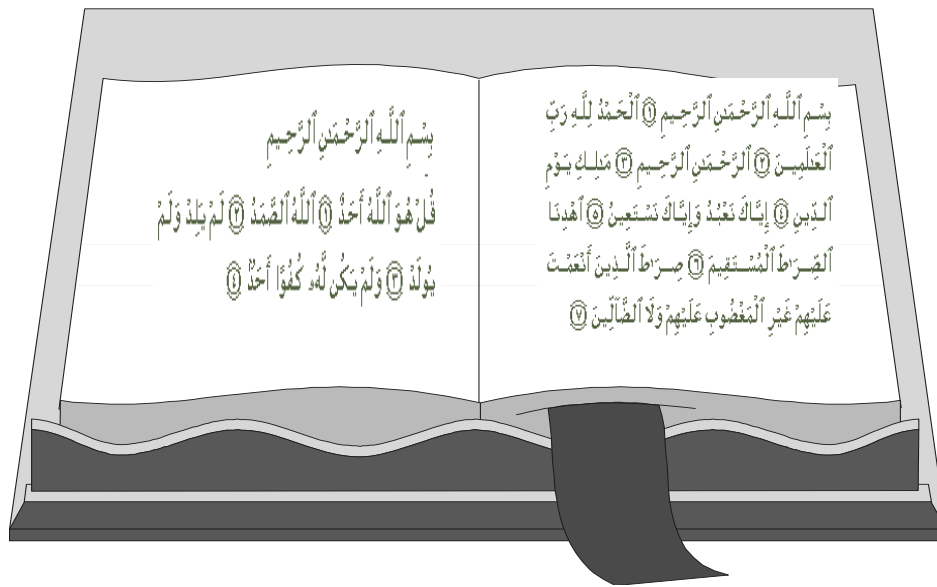 بِسْمِ ٱللَّهِ ٱلرَّحْمَـٰنِ ٱلرَّحِيمِ ١ ٱلْحَمْدُ لِلَّهِ رَبِّ
ٱلْعَـٰلَمِينَ ٢ ٱلرَّحْمَـٰنِ ٱلرَّحِيمِ ٣ مَـٰلِكِ يَوْمِ
ٱلدِّينِ ٤ إِيَّاكَ نَعْبُدُ وَإِيَّاكَ نَسْتَعِينُ ٥ ٱهْدِنَا
ٱلصِّرَٰطَ ٱلْمُسْتَقِيمَ ٦ صِرَٰطَ ٱلَّذِينَ أَنْعَمْتَ
عَلَيْهِمْ غَيْرِ ٱلْمَغْضُوبِ عَلَيْهِمْ وَلَا ٱلضَّآلِّينَ ٧
بِسْمِ ٱللَّهِ ٱلرَّحْمَـٰنِ ٱلرَّحِيمِ
قُلْ هُوَ ٱللَّهُ أَحَدٌ ١ ٱللَّهُ ٱلصَّمَدُ ٢ لَمْ يَلِدْ وَلَمْ
يُولَدْ ٣ وَلَمْ يَكُن لَّهُۥ كُفُوًا أَحَدٌۢ ٤